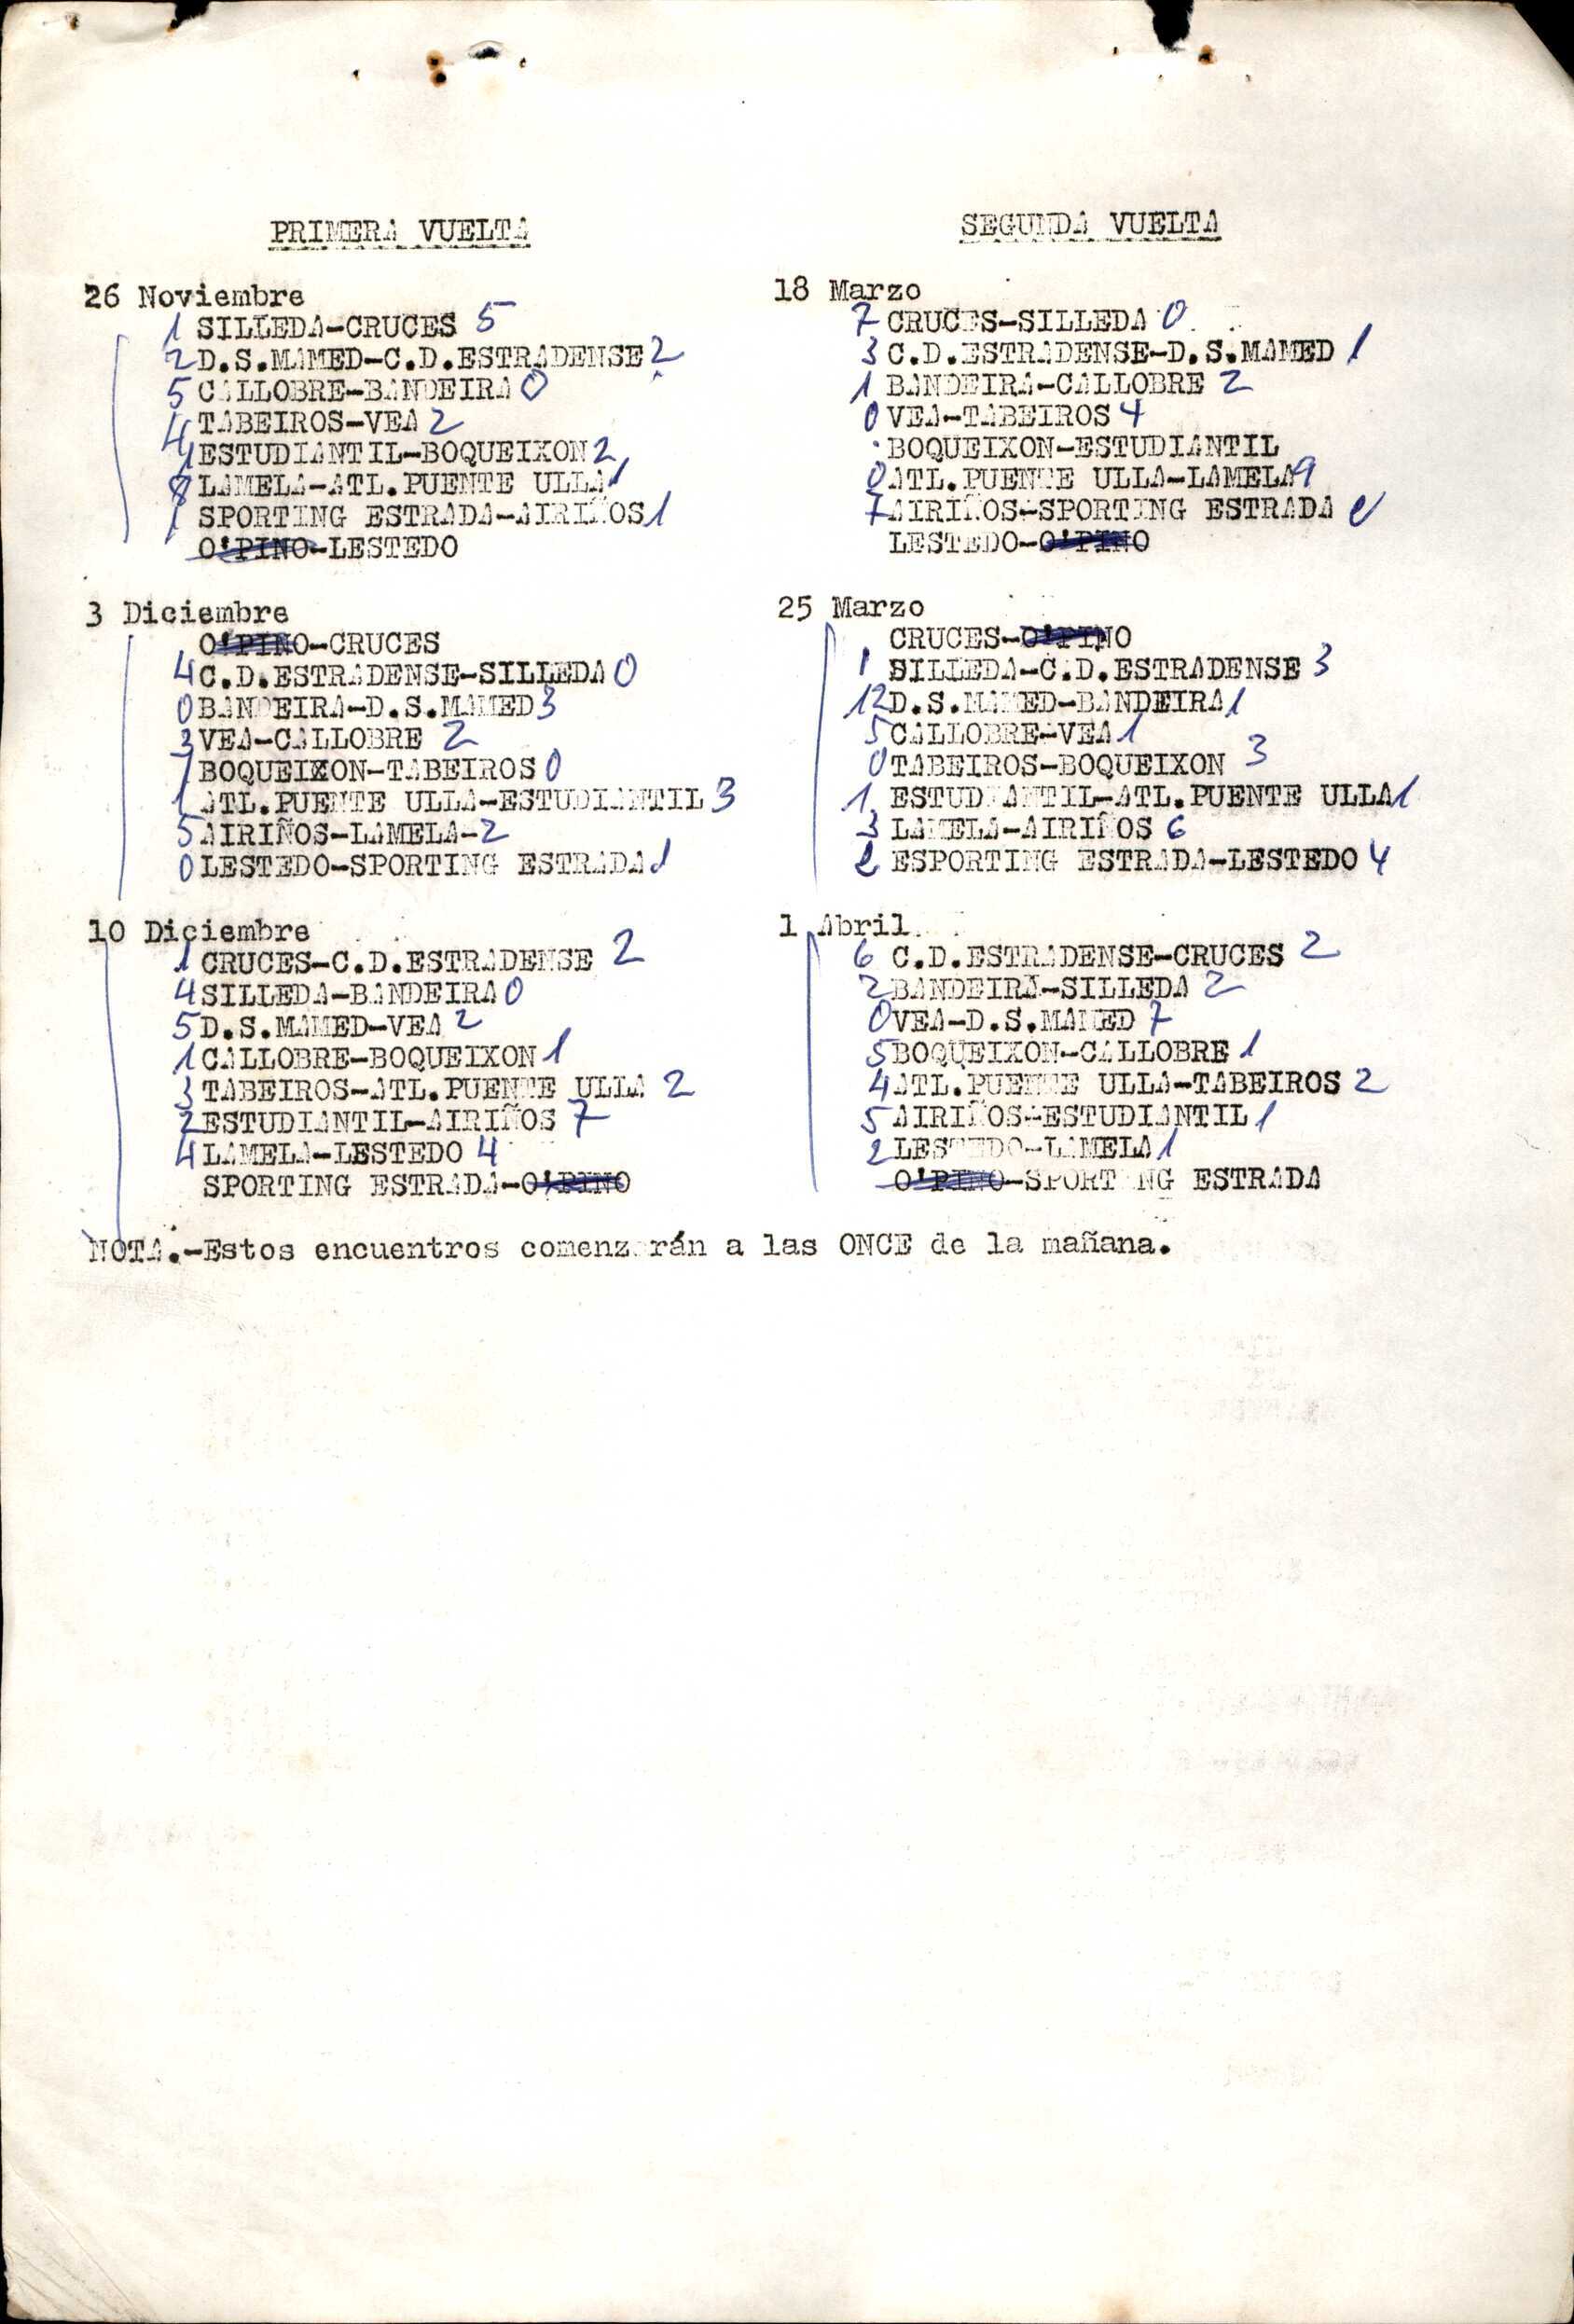 PRIMERA VUELTA
26 Noviembre
1 SILLEDA-CRUCES 5
2 D.S.MAMED-C.D.ESTRADENSE 2
5 CALLOBRE-BANDEIRA 0
4 TABEIROS-VEA 2
ESTUDIANTIL-BOQUEIXON 2
8 LAMELA-ATL.PUENTE ULLA 1
1 SPORTING ESTRADA-AIRIÑOS 1
O'PINO-LESTEDO
3 Diciembre
O'PINO-CRUCES
4 C.D.ESTRADENSE-SILLEDA 0
0 BANDEIRA-D.S.MAMED 3
3 VEA-CALLOBRE 2
BOQUEIXON-TABEIROS 0
1 ATL.PUENTE ULLA-ESTUDIANTIL 3
5 AIRIÑOS-LAMELA-2
0 LESTEDO-SPORTING ESTRADA 1
10 Diciembre
1 CRUCES-C.D.ESTRADENSE 2
4 SILLEDA-BANDEIRA 0
5 D.S.MAMED-VEA 2
1 CALLOBRE-BOQUEIXON 1
3 TABEIROS-ATL.PUENTE ULLA 2
2 ESTUDIANTIL-AIRIÑOS 7
4 LAMELA-LESTEDO 4
SPORTING ESTRADA-O'PINO
SEGUNDA VUELTA
18 Marzo
7 CRUCES-SILLEDA 0
3 C.D.ESTRADENSE-D.S.MAMED 1
1 BANDEIRA-CALLOBRE 2
0 VEA-TABEIROS 4
BOQUEIXON-ESTUDIANTIL
0 ATL.PUENTE ULLA-LAMELA 9
7 AIRIÑOS-SPORTING ESTRADA e
LESTEDO-O'PINO
25 Marzo
CRUCES-O'PINO
1 SILLEDA-C.D.ESTRADENSE 3
12 D.S.MAMED-BANDEIRA 1
5 CALLOBRE-VEA 1
0 TABEIROS-BOQUEIXON 3
1 ESTUDIANTIL-ATL.PUENTE ULLA 1
3 LAMELA-AIRIÑOS 6
e ESPORTING ESTRADA-LESTEDO 4
1 Abril
6 C.D.ESTRADENSE-CRUCES 2
2 BANDEIRA-SILLEDA 2
0 VEA-D.S.MAMED 7
5 BOQUEIXON-CALLOBRE 1
4 ATL.PUENTE ULLA-TABEIROS 2
5 AIRIÑOS-ESTUDIANTIL 1
2 LESTEDO-LAMELA 1
O'PINO-SPORTING ESTRADA
NOTA.-Estos encuentros comenzarán a las ONCE de la mañana.